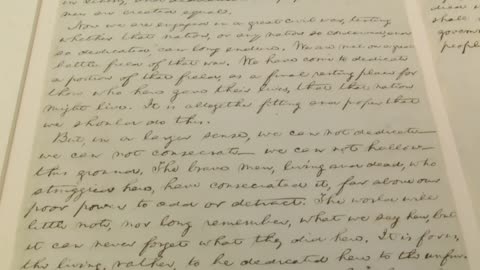 men are created equal.
Now we are engaged in a great civil war, testing
whether that nation, or any nation so conceived and
so dedicated, can long endure. We are met on a great
battle field of that war. We have come to dedicate
a portion of that field, as a final resting place for
those who here gave their lives, that that nation
might live. It is altogether fitting and proper that
we should do this.
But, in a larger sense, we can not dedicate—
we can not consecrate— we can not hallow—
this ground. The brave men, living and dead, who
struggled here, have consecrated it, far above our
poor power to add or detract. The world will
little note, nor long remember, what we say here, but
it can never forget what they did here. It is for us,
the living, rather, to be dedicated here to the unfin-
shall
govern
people